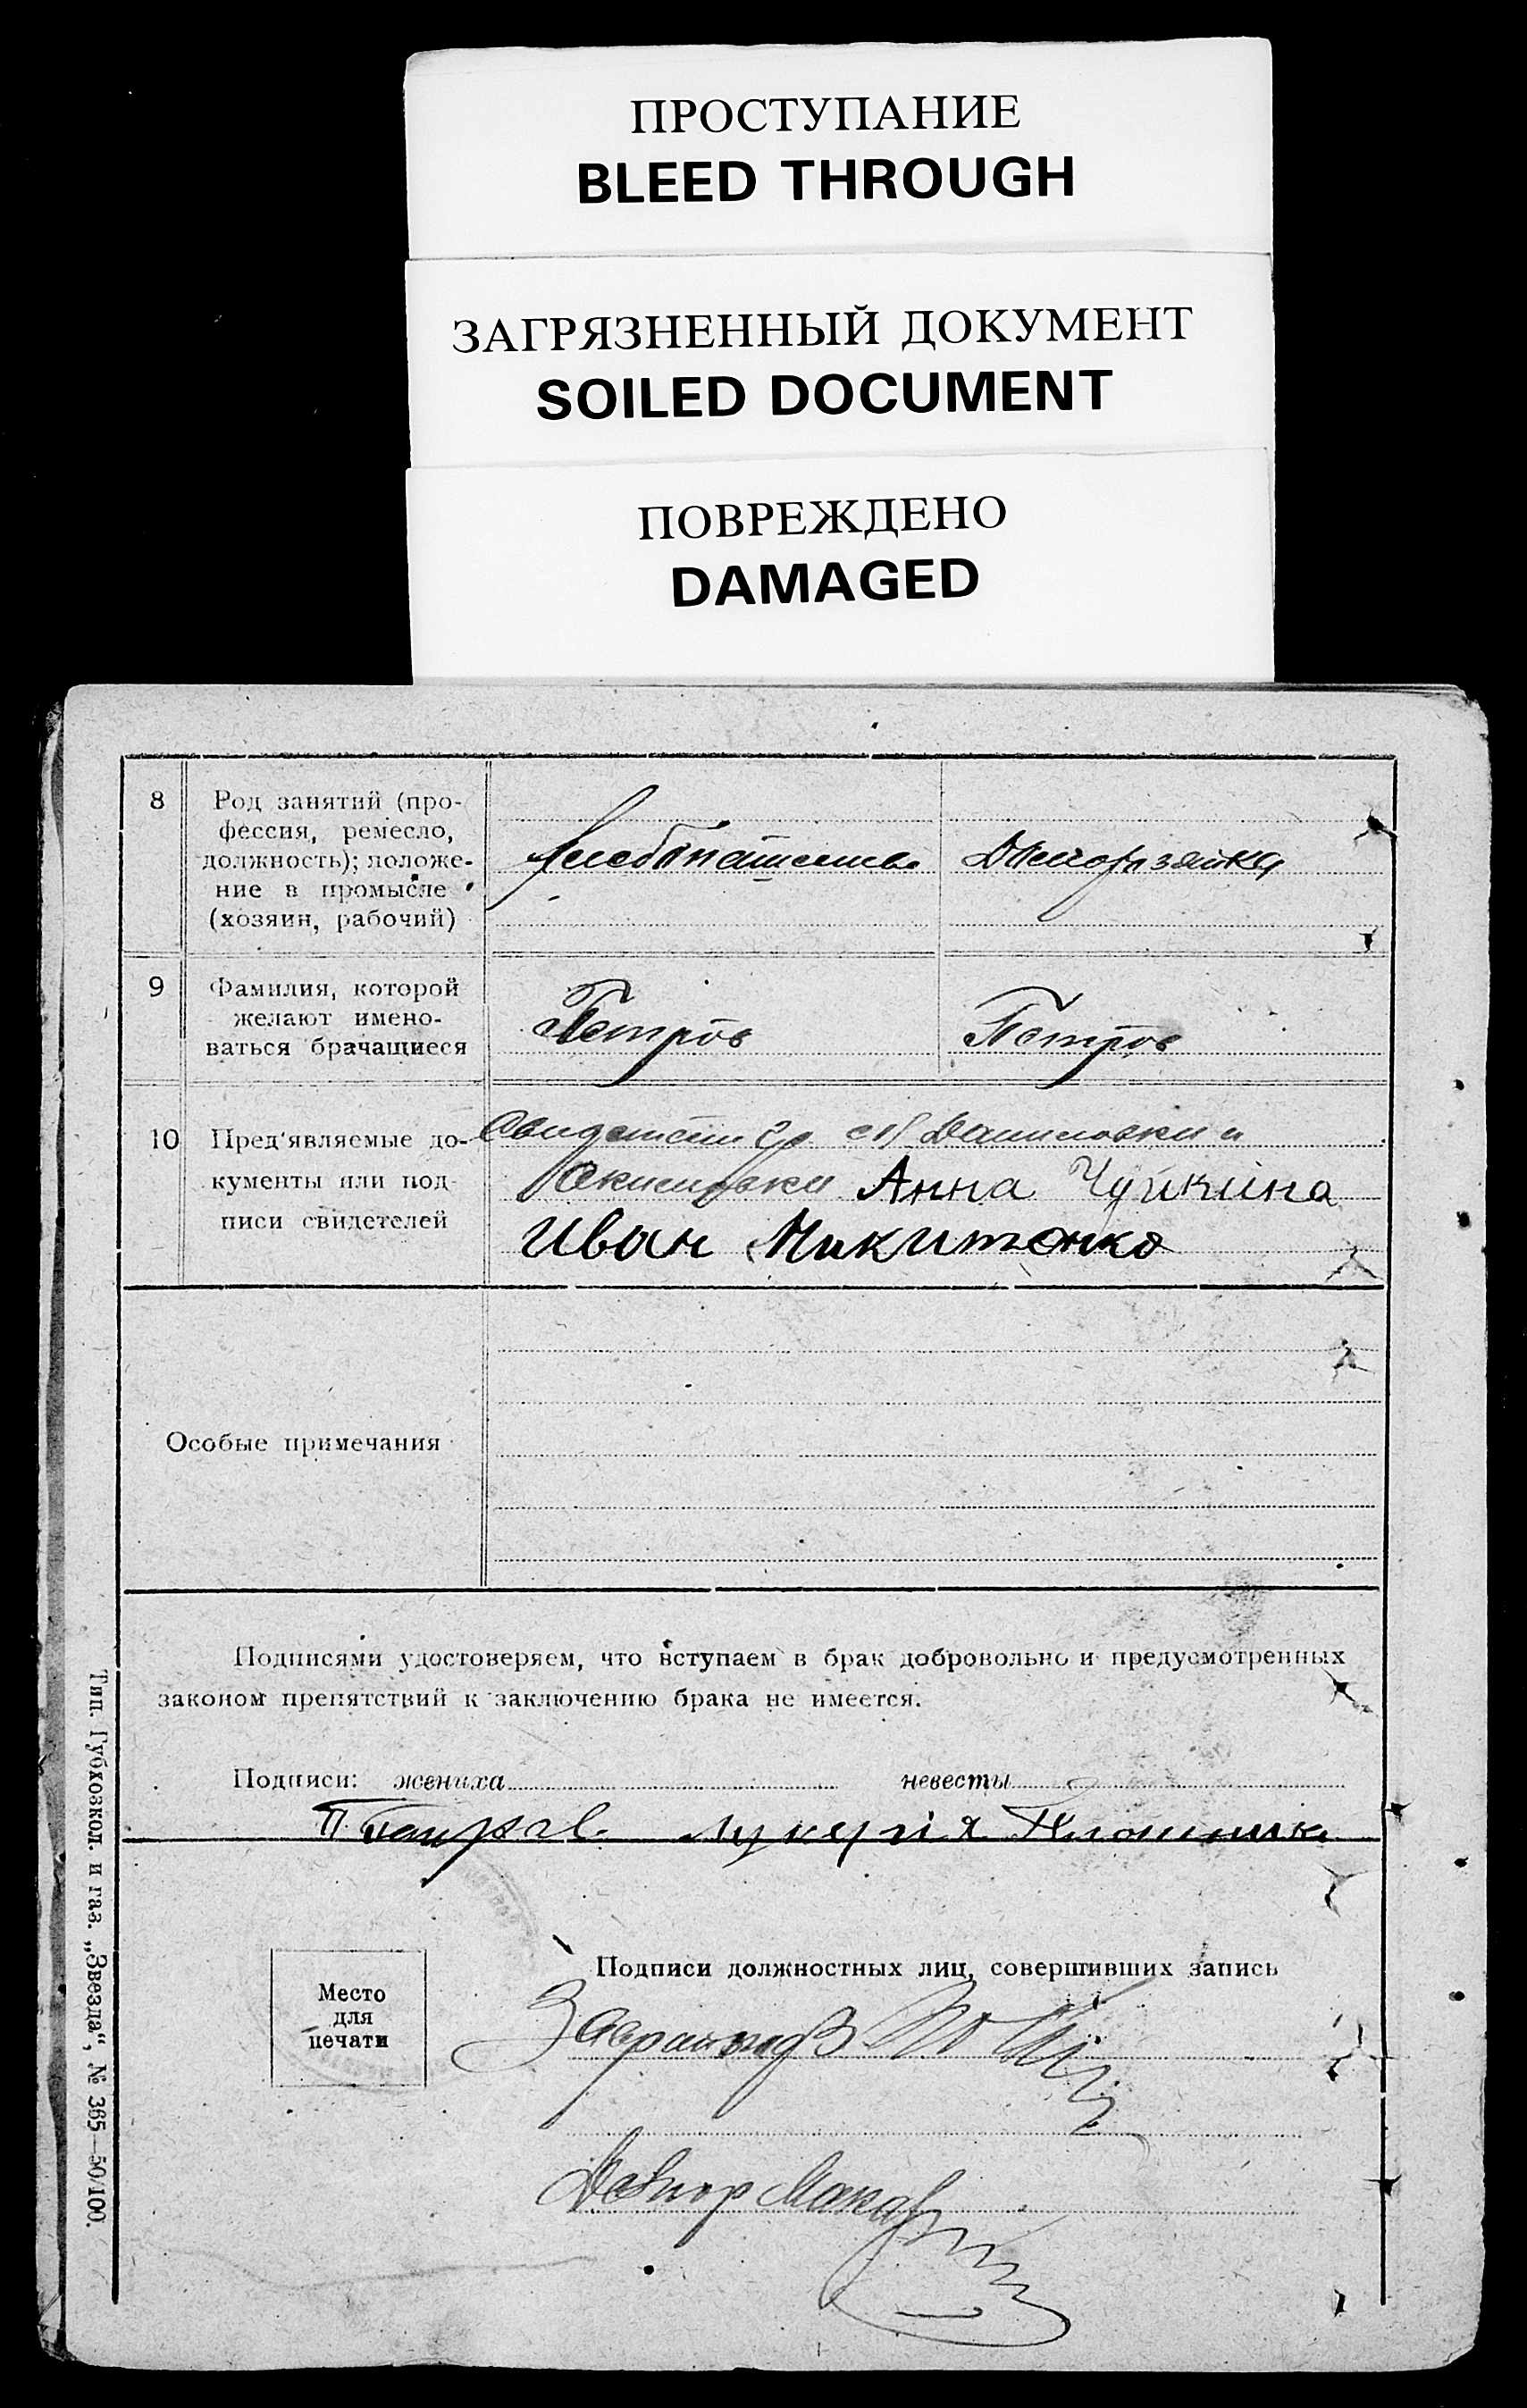 ПРОСТУПАНИЕ
BLEED THROUGH
ЗАГРЯЗНЕННЫЙ ДОКУМЕНТ
SOILED DOCUMENT
ПОВРЕЖДЕНО
DAMAGED
8
Род занятий (про-
фессия, ремесло,
должность); положе-
ние в промысле
(хозяин, рабочий)
Хлебопашество
Домохозяйка
9
Фамилия, которой
желают имено-
ваться брачащиеся
Петров
Петров
10
Пред'являемые до-
кументы или под-
писи свидетелей
Анна Чуйкіна
Иван Микитенко
Особые примечания
Подписями удостоверяем, что вступаем в брак добровольно и предусмотренных
законом препятствий к заключению брака не имеется.
Подписи: жениха невесты
Лукерія
Место
для
печати
Подписи должностных лиц, совершивших запись
Тип. Губхозкол. и газ. „Звезда“, № 365—50/100.